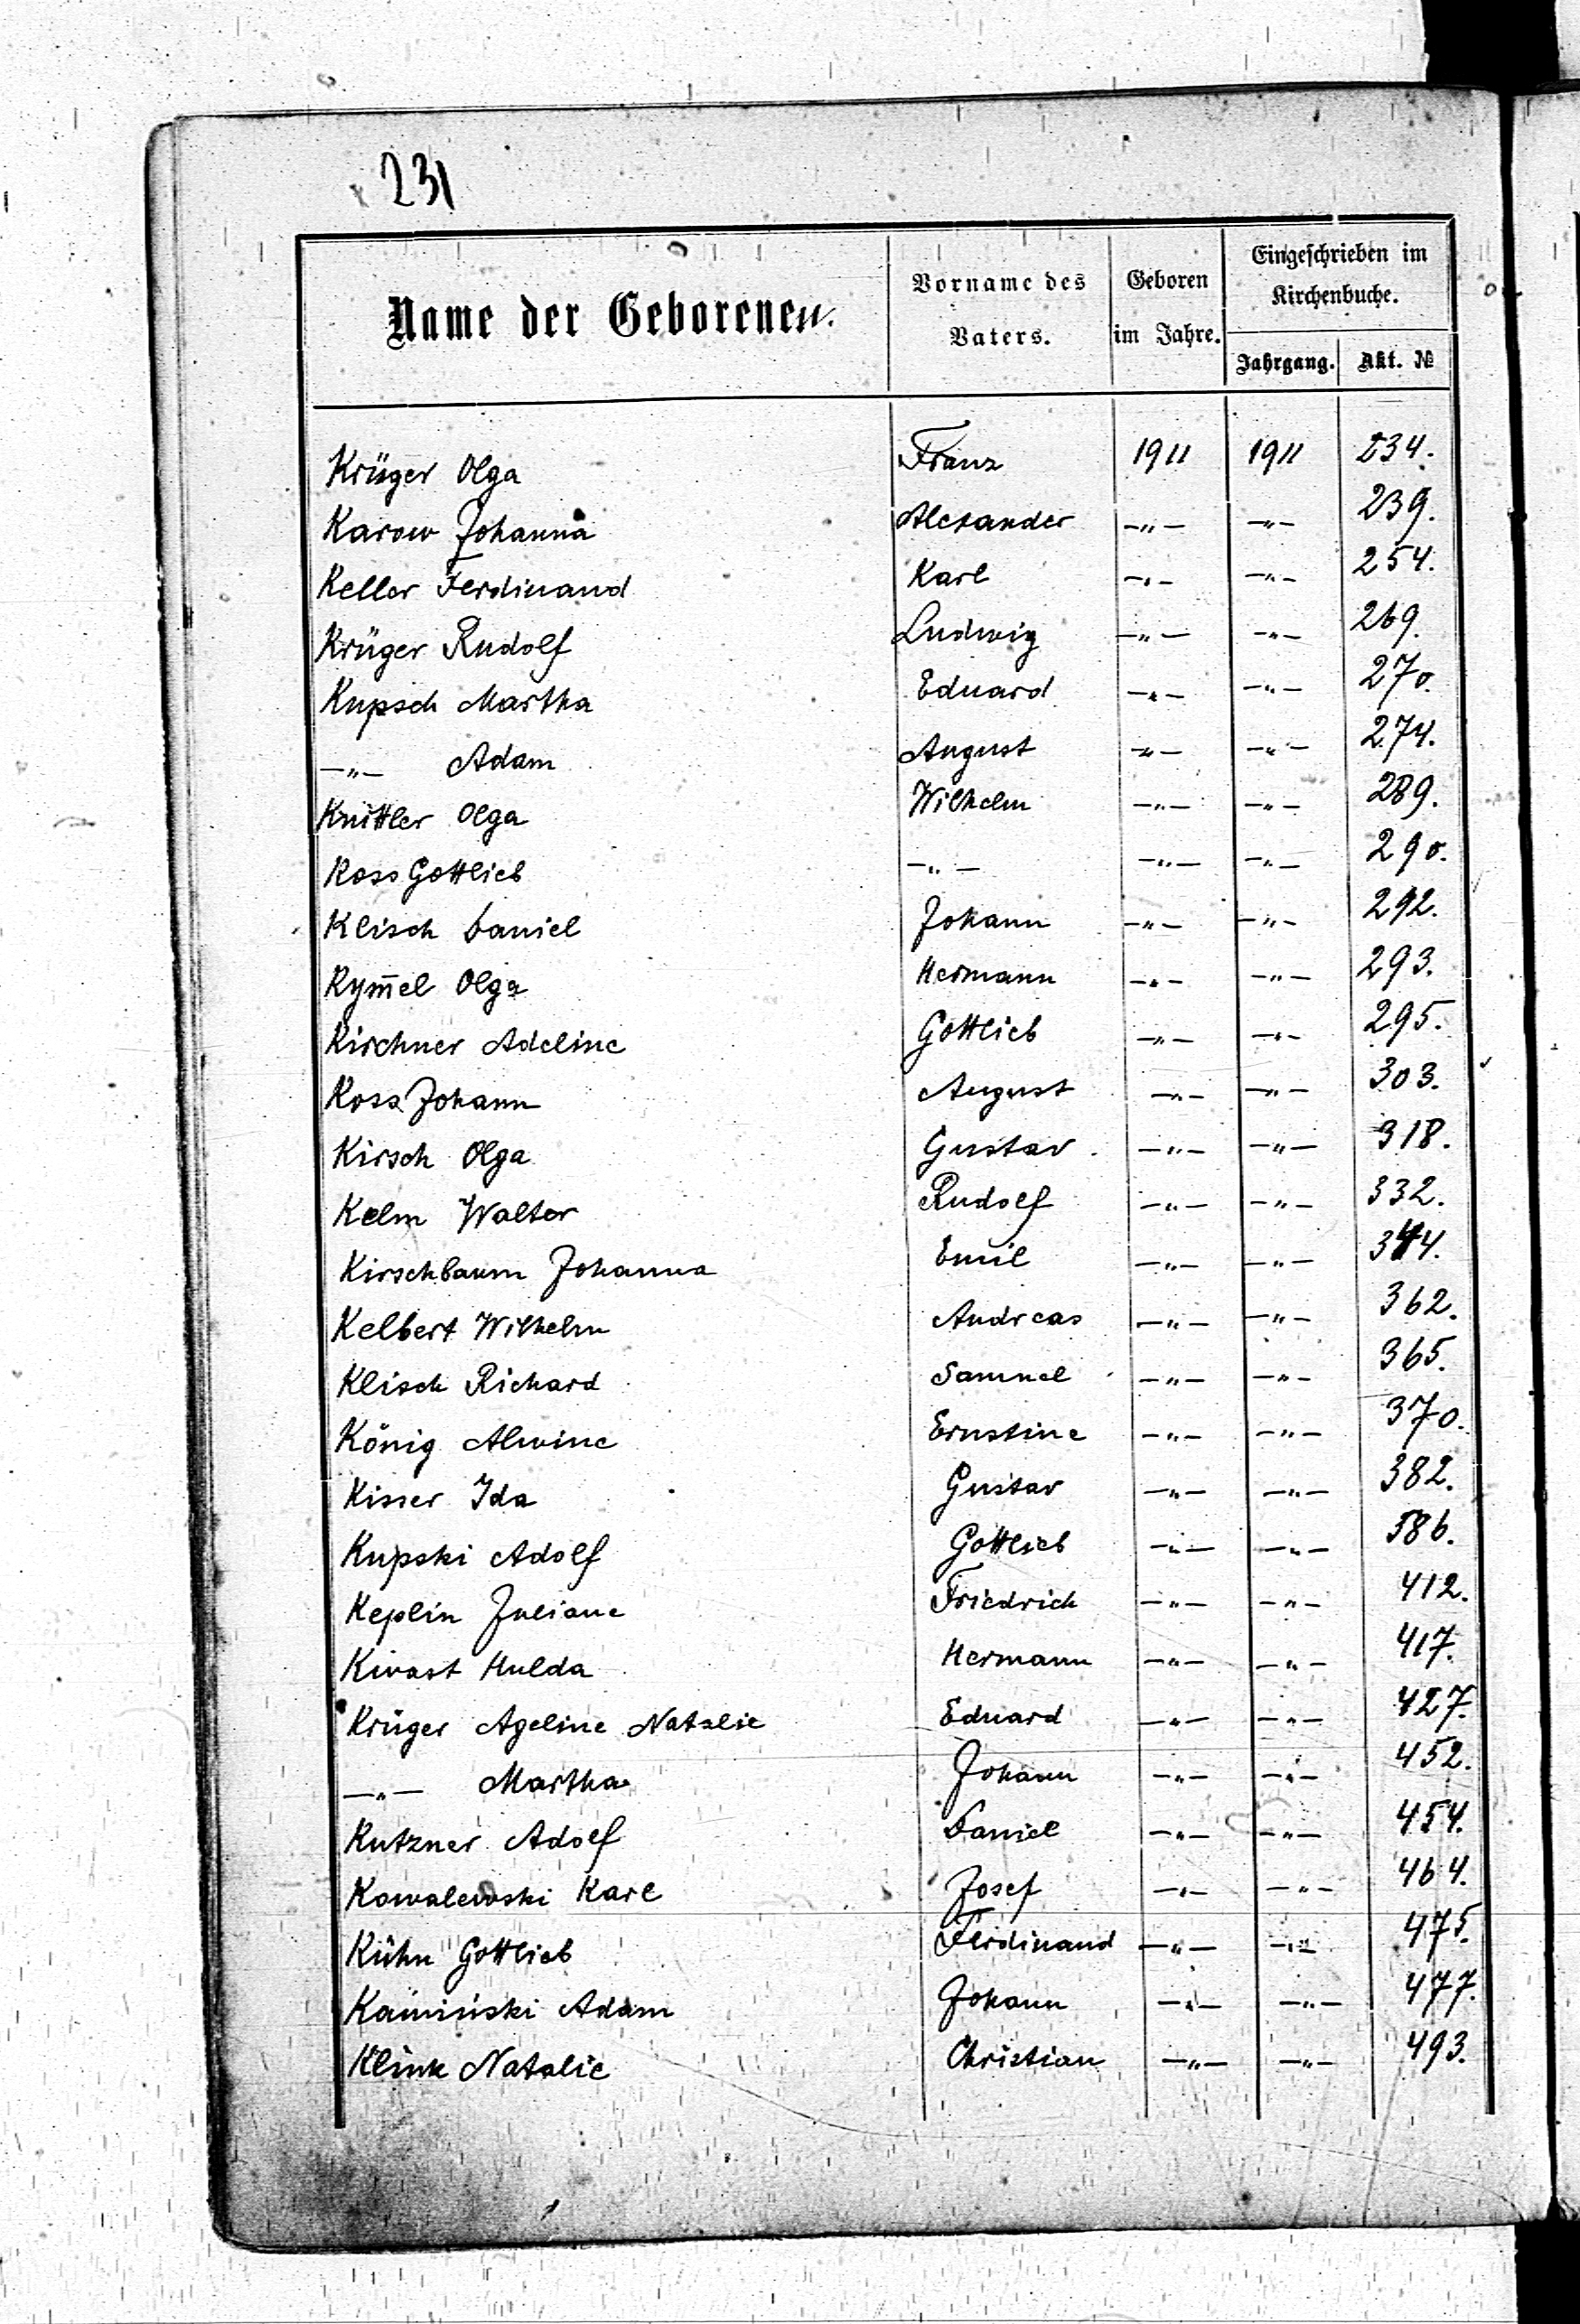 231
Name der Geborenen. Vorname des Vaters. Geboren im Jahre. Eingeschrieben im Kirchenbuche.
Jahrgang. Akt. №
Krüger Olga Franz 1911 1911 234.
Karow Johanna Alexander —"— —"— 239.
Keller Ferdinand Karl —"— —"— 254.
Krüger Rudolf Ludwig —"— —"— 269.
Kupsch Martha Eduard —"— —"— 270.
—"— Adam August —"— —"— 274.
Knittler Olga Wilhelm —"— —"— 289.
Koss Gottlieb —"— —"— —"— 290.
Klisch Daniel Johann —"— —"— 292.
Kym̅el Olga Hermann —"— —"— 293.
Kirchner Adeline Gottlieb —"— —"— 295.
Koss Johann August —"— —"— 303.
Kirsch Olga Gustav —"— —"— 318.
Kelm Walter Rudolf —"— —"— 332.
Kirschbaum Johanna Emil —"— —"— 344.
Kelbert Wilhelm Andreas —"— —"— 362.
Klisch Richard Samuel —"— —"— 365.
König Alwine Ernstine —"— —"— 370.
Kisser Ida Gustav —"— —"— 382.
Kupski Adolf Gottlieb —"— —"— 386.
Keplin Juliane Friedrich —"— —"— 412.
Kwast Hulda Hermann —"— —"— 417.
Krüger Ageline Natalie Eduard —"— —"— 427.
—"— Martha Johann —"— —"— 452.
Kutzner Adolf Daniel —"— —"— 454.
Kowalewski Karl Josef —"— —"— 464.
Kühn Gottlieb Ferdinand —"— —"— 475.
Kamiński Adam Johann —"— —"— 477.
Klink Natalie Christian —"— —"— 493.